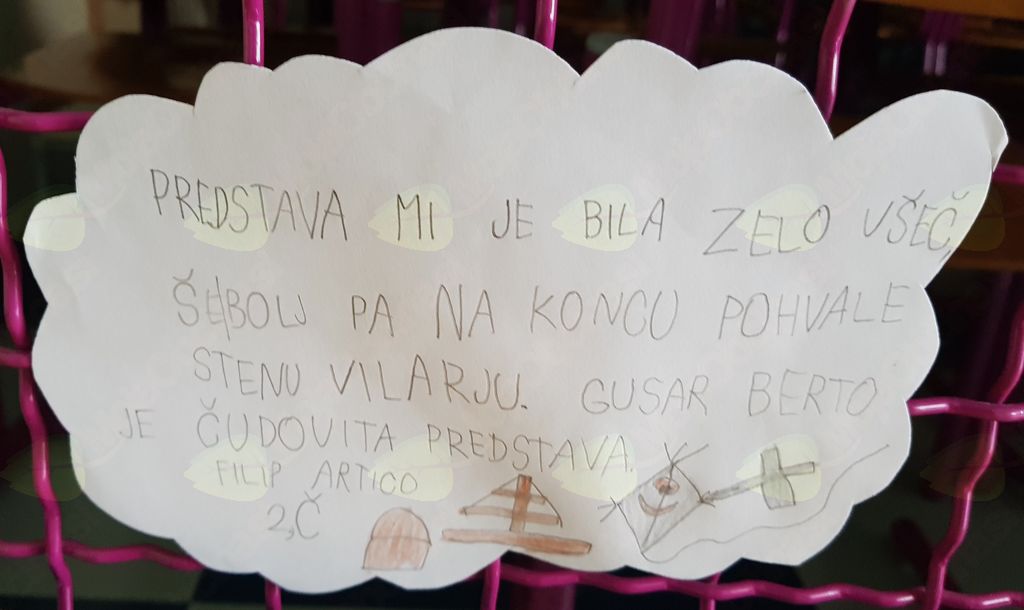 PREDSTAVA MI JE BILA ZELO VŠEČ,
ŠE BOLJ PA NA KONCU POHVALE
STENU VILARJU. GUSAR BERTO
JE ČUDOVITA PREDSTAVA.
FILIP ARTICO
2,Č